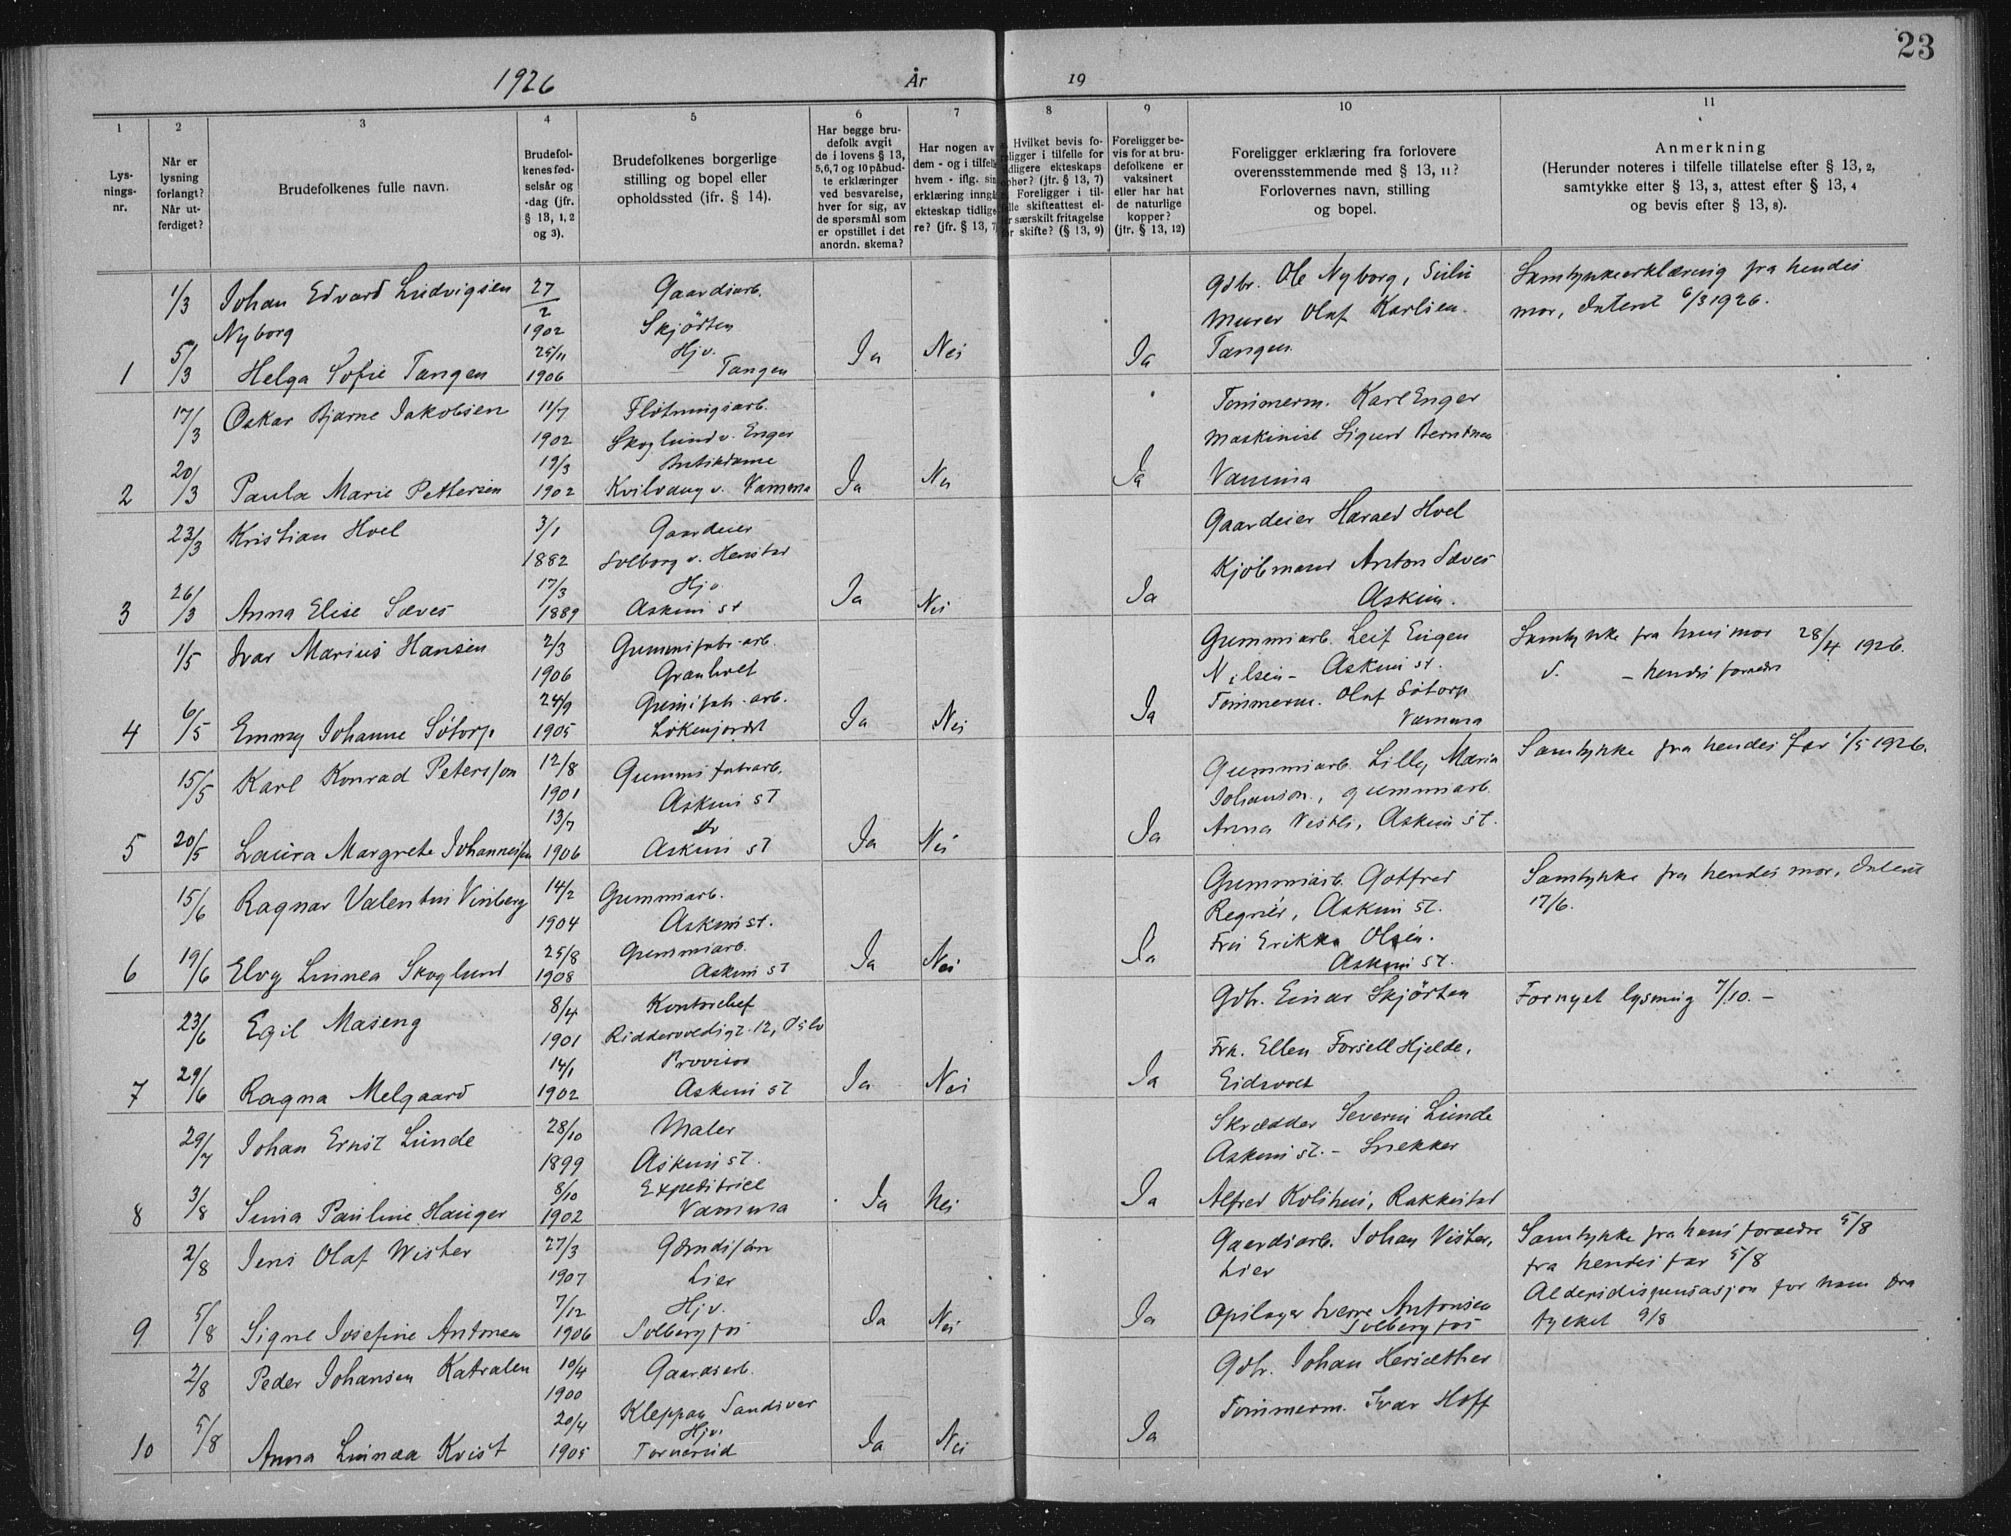 23
1926 År 19
1 2 3 4 5 6 7 8 9 10 11
Lysningsnr.
Når er lysning forlangt? Når utferdiget?
Brudefolkenes fulle navn.
Brudefolkenes fødselsår og -dag (jfr. § 13, 1, 2 og 3).
Brudefolkenes borgerlige stilling og bopel eller opholdssted (jfr. § 14).
Har begge brudefolk avgit de i lovens § 13, 5,6,7 og 10 påbudte erklæringer ved besvarelse, hver for sig, av de spørsmål som er opstillet i det anordn. skema?
Har nogen av dem - og i tilfelle hvem - iflg. sin erklæring inngå ekteskap tidligere? (jfr. § 13, 7
Hvilket bevis foreligger i tilfelle for tidligere ekteskaps ophør? (jfr. § 13, 7) Foreligger i tilfelle skifteattest eller særskilt fritagelse for skifte? (§ 13, 9)
Foreligger bevis for at brudefolkene er vaksinert eller har hat de naturlige kopper? (jfr. § 13, 12)
Foreligger erklæring fra forlovere overensstemmende med § 13, 11? Forlovernes navn, stilling og bopel.
Anmerkning (Herunder noteres i tilfelle tillatelse efter § 13, 2, samtykke etter § 13, 3, attest efter § 13, 4 og bevis efter § 13, 8).
1/3 Johan Edvard Ludvigsen 27/2 Gaardsarb. Gdbr. Ole Nyborg, Samtykkeerklæring fra hendes
Nyborg 1902 Skjørten Murer Olaf Karlsen mor, datert 6/3 1926.
5/3 25/11 Hjv. Tangen
1 Helga Sofie Tangen 1906 Tangen Ja Nei Ja
17/3 Oskar Bjarne Jakobsen 11/7 Fløtningsarb. Tømmerm. Karl Enger
1902 Skoglund v. Enger Maskinist Sigurd Berntsen
20/3 19/3 Butikdame
2 Paula Marie Pettersen 1902 Kvilvang v. Vamma Ja Nei Ja Vamma
23/3 Kristian Hoel 3/1 Gaardeier Gaardeier Harald Hoel
1882 Solborg v. Henstad Kjøbmand Anton Sæves
26/3 17/3 Hjv.
3 Anna Elise Sæves 1889 Askim st Ja Nei Ja Askim.
1/5 Ivar Marius Hansen 2/3 Gummifabr. arb. Gummiarb. Leif Eugen Samtykke fra hans mor 28/4 1926.
1906 Granholt Nilsen - Askim st. d. - hendes foræedre
6/5 24/9 Gumifab. arb. Tømmerm. Olaf Søtorp
4 Emmy Johanne Søtorp 1905 Løkenjordet Ja Nei Ja Vamma
15/5 Karl Konrad Petersson 12/8 Gummi fabrarb. Gummiarb. Lilly Maria Samtykke fra hendes far 1/5 1926.
1901 Askim st Johanson, gummiarb.
20/5 13/7 do
5 Laura Margrete Johannessen 1906 Askim st Ja Nei Ja Anna Vestli, Askim st.
15/6 Ragnar Valentin Vinberg 14/2 Gummiarb. Gummiarb. Gotfred Samtykke fra hendes mor, datert
1904 Askim st. Regnér, Askim st. 17/6.
19/6 25/8 Gummiarb. Fru Erikka Olsen.
6 Elvy Linnea Skoglund 1908 Askim st Ja Nei Ja Askim st.
23/6 Egil Maseng 8/4 Kontorchef Gdbr. Einar Skjørten Fornyet lysning 7/10. -
1901 Riddervoldsgt. 12, Oslo
29/6 14/1 Provisor Frk. Ellen Forsell Hjelde,
7 Ragna Melgaard 1902 Askim st Ja Nei Ja Eidsvold
29/7 Johan Ernst Lunde 28/10 Maler Skrædder Severin Lunde
1899 Askim st. Askim st. - Snekker
3/8 8/10 Expeditrice
8 Pauline Hauger 1902 Vamma Ja Nei Ja Alfred Kolshus, Rakkestad
2/8 Jens Olaf Wister 27/3 Gaardsarb. Johan Vister, Samtykke fra hans foræedre 5/8
1907 Lier Lier fra hendes far 5/8
5/8 7/12 Hjv. Opsitter Sverre Antonsen Aldersdispensasjon for ham fra
9 Signe Josefine Antonsen 1906 Solbergfos Ja Nei Ja Solbergfos fylket 9/8
2/8 Peder Johansen Katralen 10/4 Gaardsarb. Gdbr. Johan Hersæther
1900 Kleppaa, Sandsvær Tømmerm. Ivar Hoff
5/8 20/4 Hjv.
10 Anna Linnæa Kvist 1905 Tornerud Ja Nei Ja